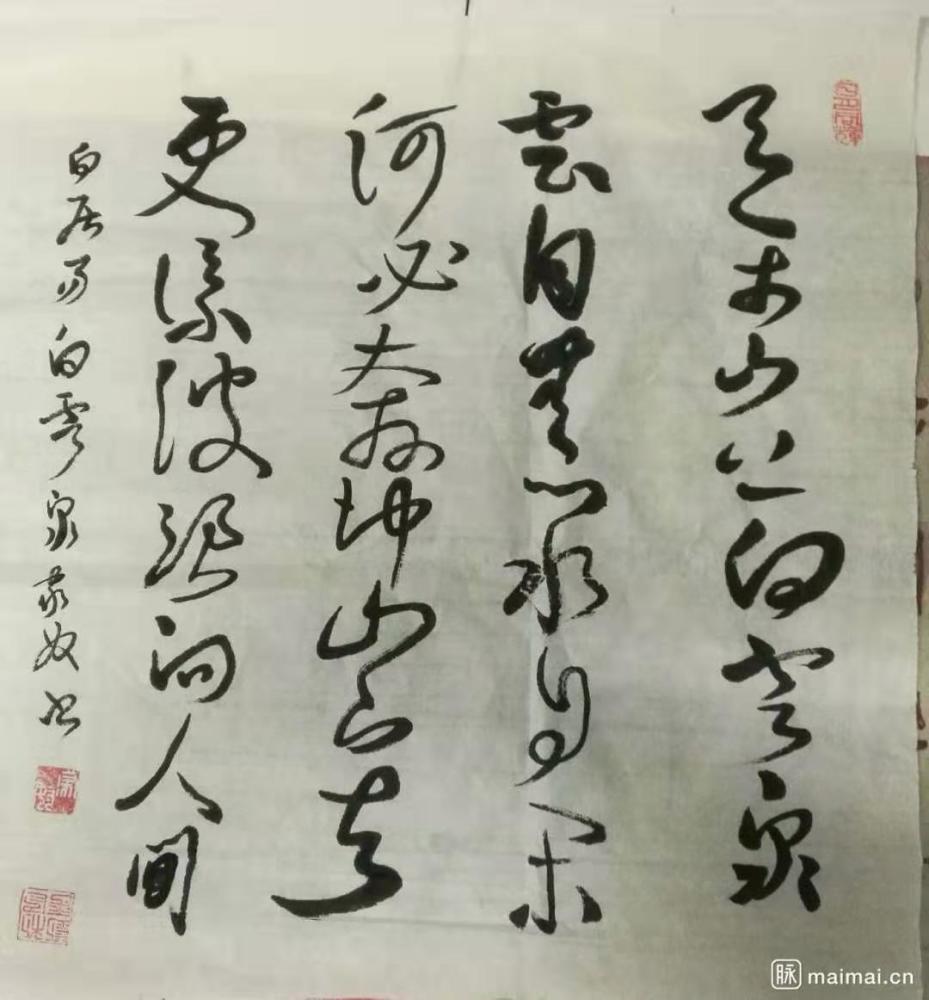 天平山上白云泉
雲自無心水自闲
何必奔冲山下去
更添波浪向人間
白居易白雲泉 书
脉 maimai.cn